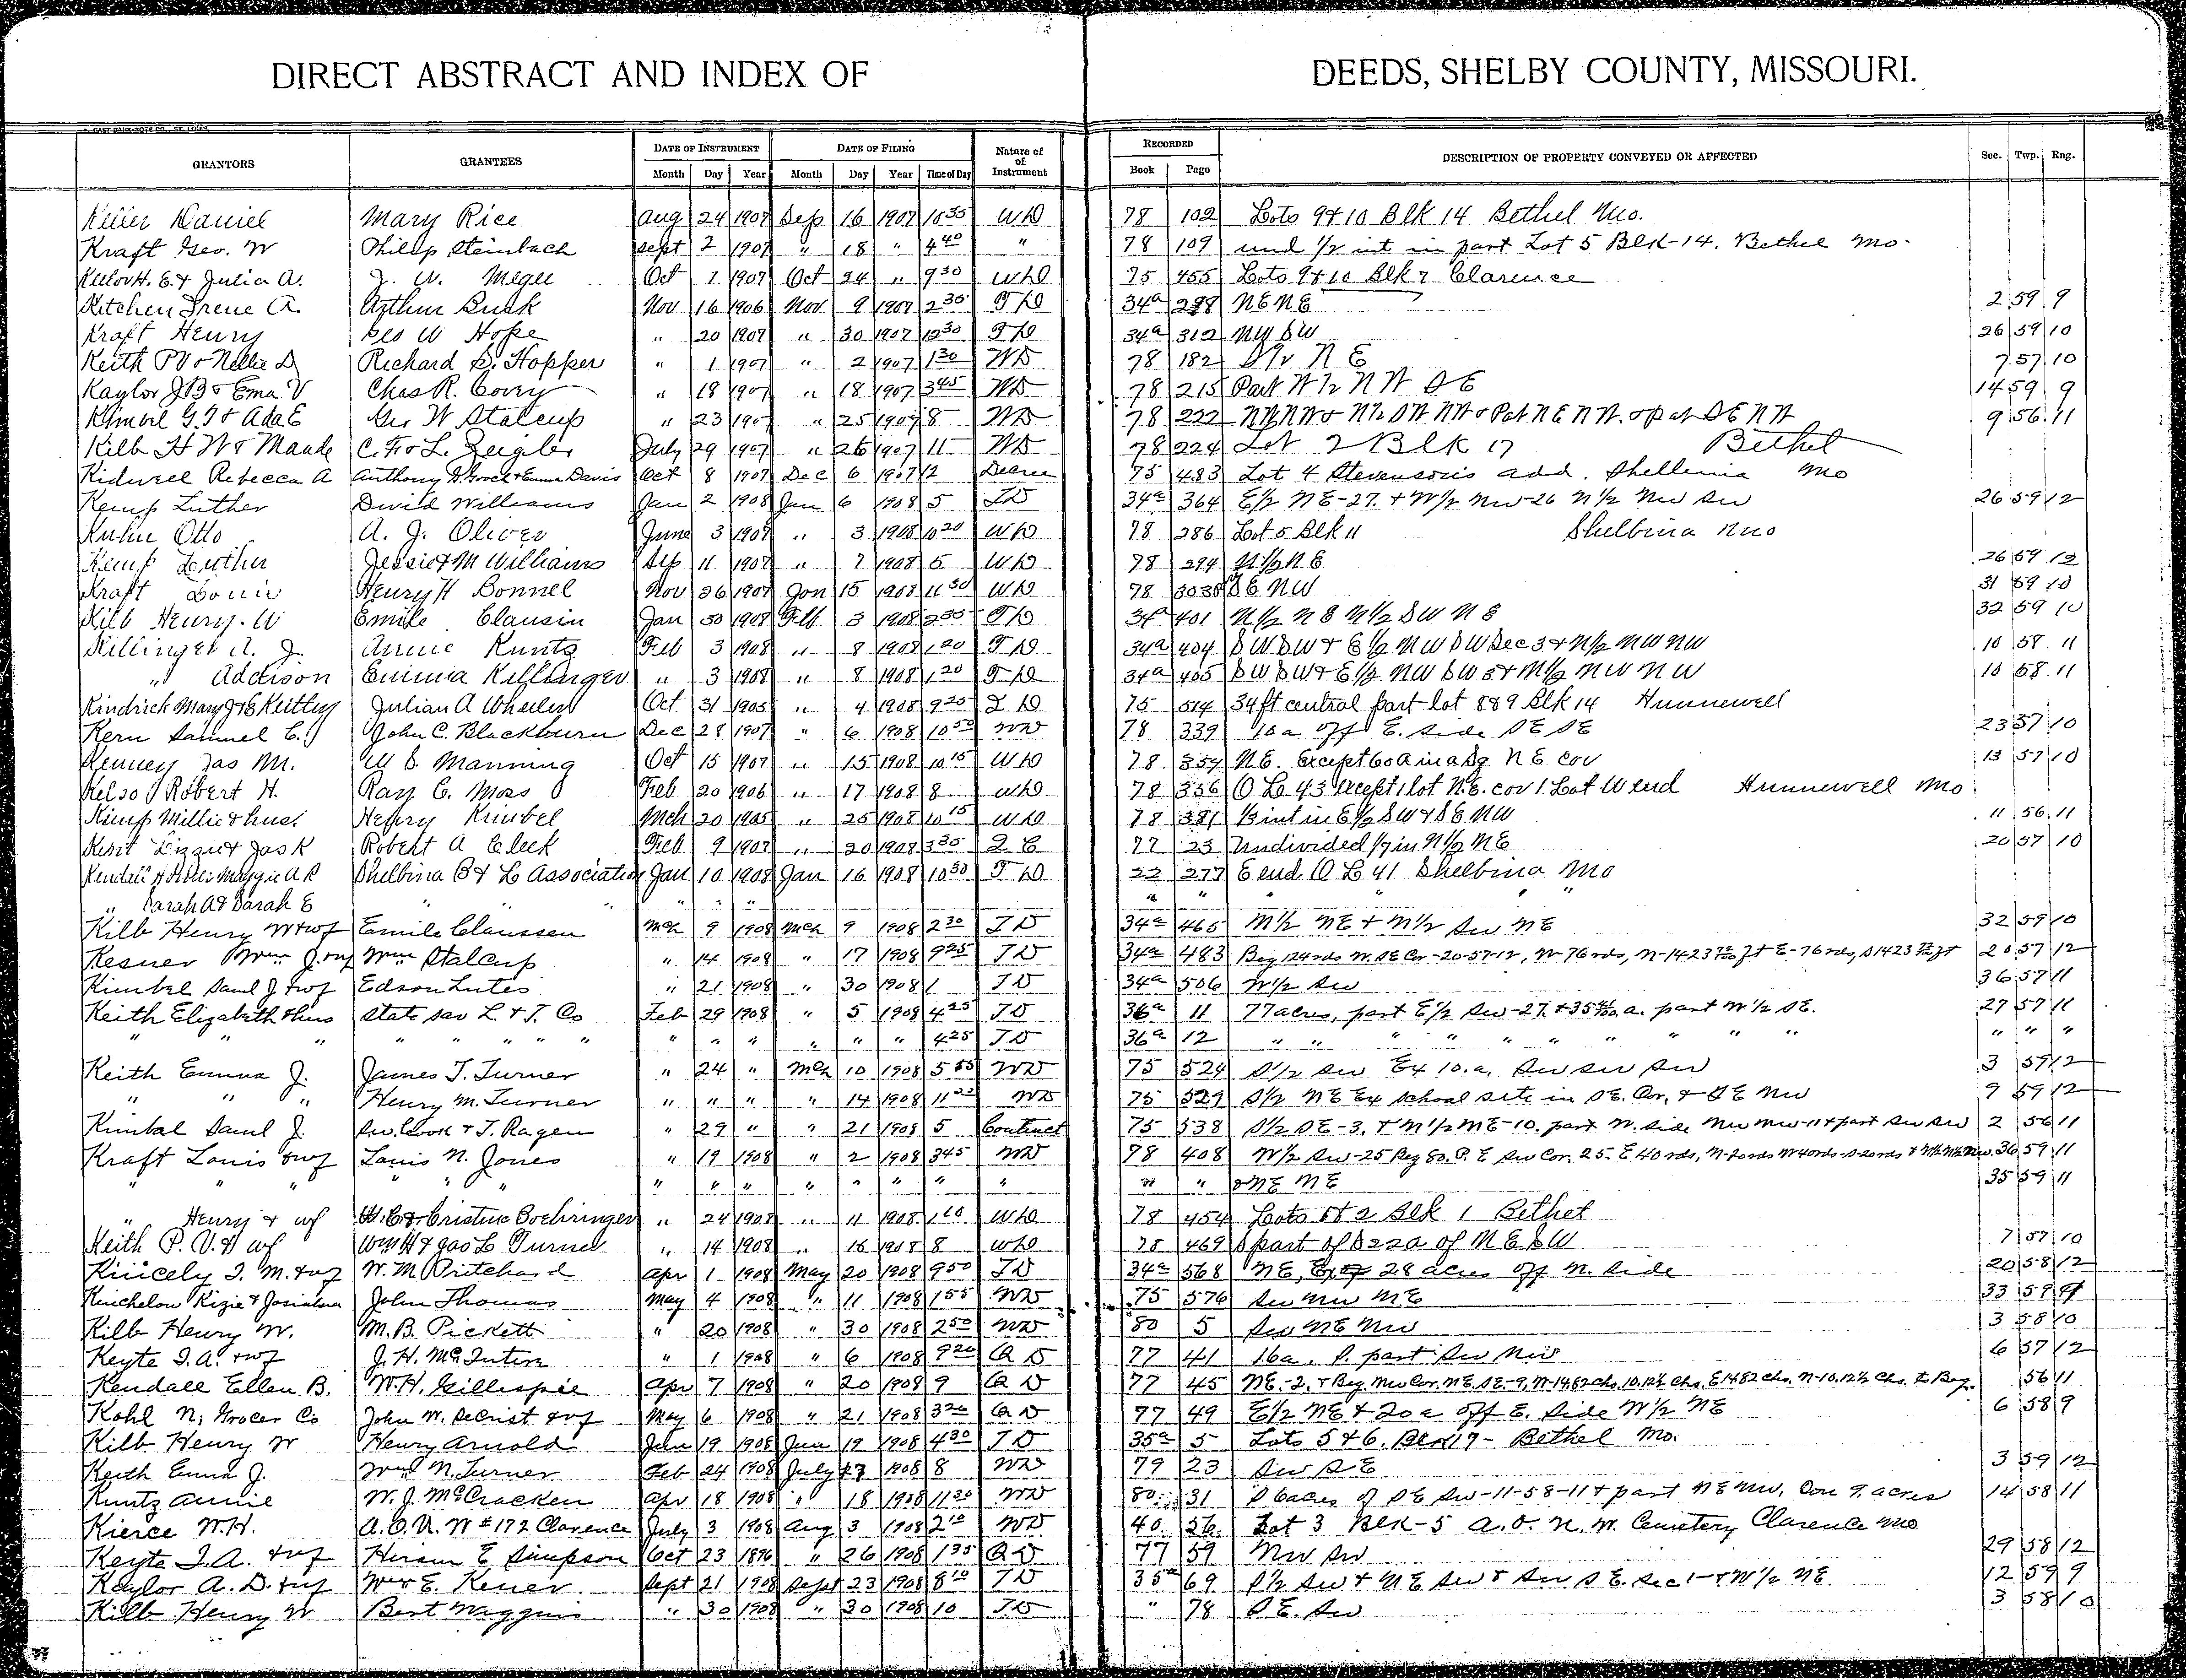 DIRECT ABSTRACT AND INDEX OF DEEDS, SHELBY COUNTY, MISSOURI.
GRANTORS GRANTEES DATE OF INSTRUMENT DATE OF FILING Nature of of Instrument RECORDED DESCRIPTION OF PROPERTY CONVEYED OR AFFECTED Sec. Twp. Rng.
Month Day Year Month Day Year Time of Day Book Page
Daniel Mary Rice Aug 24 1907 Sep 16 1907 10 35 WD 78 102 Lots 9 & 10 Blk 14 Bethel Mo.
Kraft Geo. W Philip Steinbach Sept 2 1907 " 18 " 4 40 " 78 109 und 1/2 int in part Lot 5 Blk-14. Bethel Mo.
H. E. & Julia A. J. W. Oct 1 1907 Oct 24 " 9 30 WD 75 455 Lots 9 & 10 Blk 7 Clarence
Kitchen Irene A. Arthur Nov 16 1906 Nov 9 1907 2 30 TD 34a 298 NE NE 2 59 9
Kraft Henry Geo W Hope " 20 1907 " 30 1907 TD 34a 312 NW SW 26 59 10
Keith PV & Nellie D Richard S. Hopper " 1 1907 " 2 1907 1 30 WD 78 182 S 1/2 N E 7 57 10
Kaylor J B & Ema V Chas R. Corry " 18 1907 " 18 1907 3 45 WD 78 215 Part W 1/2 N W S E 14 59 9
G. T & Ada E Geo W Stalcup " 23 1907 " 25 1907 8 WD 78 222 NW NW & N 1/2 SW NW & Pat N E N W. & p at S E N W 9 56 11
Kilb H W & Maude C. F & L. Zeigler July 29 1907 " 26 1907 11 WD 78 224 Lot 2 Blk 17 Bethel
Kidwell Rebecca A Anthony & Emma Davis Oct 8 1907 Dec 6 1907 2 Decree 75 483 Lot 4 Stevenson's add. Shelbina Mo
Kemp Luther David Williams Jan 2 1908 Jan 6 1908 5 TD 34a 364 E/2 NE-27. & W/2 NW-26 N 1/2 NW SW 26 59 12
Kuhn Otto A. J. Oliver June 3 1907 " 3 1908 10 20 WD 78 286 Lot 5 Blk 11 Shelbina Mo
Kemp Luther Jessie & M Williams Sep 11 1907 " 7 1908 5 WD 78 294 N 1/2 N E 26 59 12
Kraft Louis Henry H Bonnel Nov 26 1907 Jan 15 1908 11 30 WD 78 303 SE NW 31 59 10
Kilb Henry. W Emile Clausin Jan 30 1908 Feb 3 1908 2 35 TD 34a 401 N 1/2 N E N 1/2 SW N E 32 59 10
Killinger A. J. Annie Kuntz Feb 3 1908 " 8 1908 1 20 TD 34a 404 SW SW & E 1/2 NW SW Sec 3 & N/2 NW NW 10 58 11
" Addison Emma Killinger " 3 1908 " 8 1908 1 20 TD 34a 405 SW SW & E 1/2 NW SW 3 & N 1/2 NW NW 10 58 11
Kindrick Mary J & E Keithly Julian A Wheeler Oct 31 1905 " 4 1908 9 25 75 514 34 ft central part lot 8 & 9 Blk 14 Hunnewell
Kern Samuel E. John C. Blackburn Dec 28 1907 " 6 1908 10 50 WD 78 339 10 a off E. side SE SE 23 57 10
Kenney Jas M. W S. Manning Oct 15 1907 " 15 1908 10 15 WD 78 354 N.E. Except 60 a in a Sq N E cor 13 57 10
Kelso Robert H. Ray E. Moss Feb 20 1906 " 17 1908 8 WD 78 356 O L 43 except 1 lot N.E. cor 1 Lot W end Hunnewell Mo
Kemp Millie & hus. Henry Kimbel Mch 20 1905 " 25 1908 10 15 WD 78 381 1/3 int in E 1/2 SW & SE NW 11 56 11
Kent Lizzie & Jas K Robert A Cleek Feb 9 1907 " 20 1908 3 35 Q C 77 23 Undivided 1/7 in N 1/2 NE 20 57 10
Maggie A R Shelbina B & L Association Jan 10 1908 Jan 16 1908 10 30 TD 22 277 E end O L 41 Shelbina Mo
" Sarah A & Sarah E " " " " " " " " " "
Kilb Henry W & wf Emile Claussen Mch 9 1908 Mch 9 1908 2 30 TD 34a 465 N 1/2 NE & N 1/2 SW NE 32 59 10
Kesner Wm J. & wf Wm Stalcup " 14 1908 " 17 1908 9 25 TD 34a 483 Beg 124 rds W. SE Cor-20-57-12, W-76 rds, N-1423 ft E-76 rds, S 1423 ft 20 57 12
Kimbel Saml J & wf Edson Lutes " 21 1908 " 30 1908 1 TD 34a 506 W 1/2 SW 36 57 11
Keith Elizabeth & hus State Sav L. & T. Co Feb 29 1908 " 5 1908 4 25 TD 36a 11 77 acres, part E 1/2 SW-27. & 35 a. part W 1/2 SE. 27 57 11
" " " " " " " " " " " " " " " 4 25 TD 36a 12 " " " " " " " " " " " "
Keith Emma J. James T. Turner " 24 " Mch 10 1908 5 55 WD 75 524 S 1/2 SW Ex 10. a. SW SW SW 3 59 12
" " " Henry M. Turner " " " " 14 1908 11 WD 75 529 S 1/2 NE Ex school site in SE. Cor. & SE NW 9 59 12
Kimbal Saml J. Cook & T. Ragen " 29 " " 21 1908 5 Contract 75 538 S 1/2 SE-3. & N 1/2 NE-10. part N. side NW NW-11 & part SW SW 2 56 11
Kraft Louis & wf Louis N. Jones " 19 1908 " 2 1908 3 45 WD 78 408 W 1/2 SW-25 Beg 80. P. E SW Cor. 25-E 40 rds, N-20 rds W 40 rds-S-20 rds & N 1/2 NE NW. 36 59 11
" " " " " " " " " " " " " " " " & NE NE 35 59 11
" Henry & wf W. C & Cristine Boehringer " 24 1908 " 11 1908 1 10 WD 78 454 Lots 1 & 2 Blk 1 Bethel
Keith P. V. & wf Wm H & Jas L Turner " 14 1908 " 16 1908 8 WD 78 469 S part of S 22 a of N E SW 7 57 10
Knicely T. M. & wf W. M. Pritchard Apr 1 1908 May 20 1908 9 50 TD 34a 568 NE, Ex 28 acres off N. side 20 58 12
Kinchelow Kizie & John Thomas May 4 1908 " 11 1908 1 55 WD 75 576 SW NW NE 33 59 9
Kilb Henry W. M. B. Pickett " 20 1908 " 30 1908 2 50 WD 80 5 SW NE NW 3 58 10
Keyte I. A. & wf J. H. McIntire " 1 1908 " 6 1908 9 20 Q D 77 41 16 a. S. part SW NW 6 57 12
Kendall Ellen B. W. H. Gillespie Apr 7 1908 " 20 1908 9 Q D 77 45 NE.-2, & Beg. NW Cor. NE. SE.-9, W-14.82 chs, 10.12 1/2 chs, E 14.82 chs. N-10.12 1/2 chs. to Beg. 56 11
Kohl N; Grocer Co John W. DeCrist & wf May 6 1908 " 21 1908 3 20 Q D 77 49 E 1/2 NE & 20 a off E. side W 1/2 NE 6 58 9
Kilb Henry W Henry Arnold Jun 19 1908 Jun 19 1908 4 30 TD 35a 5 Lots 5 & 6. Blk 19 - Bethel Mo.
Keith Emma J. Wm N. Turner Feb 24 1908 July 1908 8 WD 79 23 SW SE 3 59 12
Kuntz Annie W. J. McCracken Apr 18 1908 " 18 1908 11 30 WD 80 31 S 6 acres of SE SW-11-58-11 & part NE NW, Con 9. acres 14 58 11
Kierce W. H. A. O. U. W #172 Clarence July 3 1908 Aug 3 1908 2 10 WD 40 26 Lot 3 Blk-5 A. O. U. W. Cemetery Clarence Mo
Keyte I. A. & wf Hiram E Simpson Oct 23 1896 " 26 1908 1 35 Q D 77 59 NW SW 29 58 12
Kaylor A. D. & wf Wm E. Sept 21 1908 Sept 23 1908 8 10 TD 35a 69 S 1/2 SW & NE SW & SW SE. Sec 1-& W 1/2 NE. 12 59 9
Kilb Henry W Bert Wiggins " 30 1908 " 30 1908 10 TD " 78 SE. SW 3 58 10